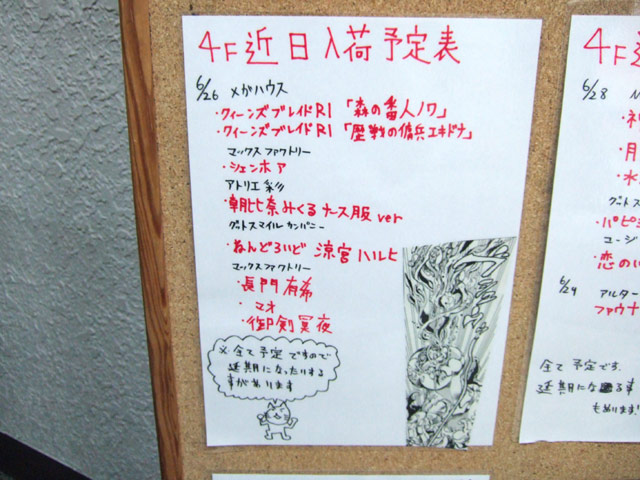 4F近日入荷予定表
6/26 メガハウス
・クイーンズブレイドR1「森の番人ノワ」
・クイーンズブレイドR1「歴戦の傭兵エキドナ」
マックスファクトリー
・シェンホア
アトリエ彩
・朝比奈みくるナース服ver
グットスマイルカンパニー
・ねんどろいど 涼宮ハルヒ
マックスファクトリー
・長門有希
・マオ
・御剣冥夜
※全て予定ですので
延期になったりする
事があります
4F近
6/28
・神
・月
・水
グットス
・パピ
コージ
・恋の
6/29 アルター
ファウナ
全て予定です.
延期になる事
もあります!